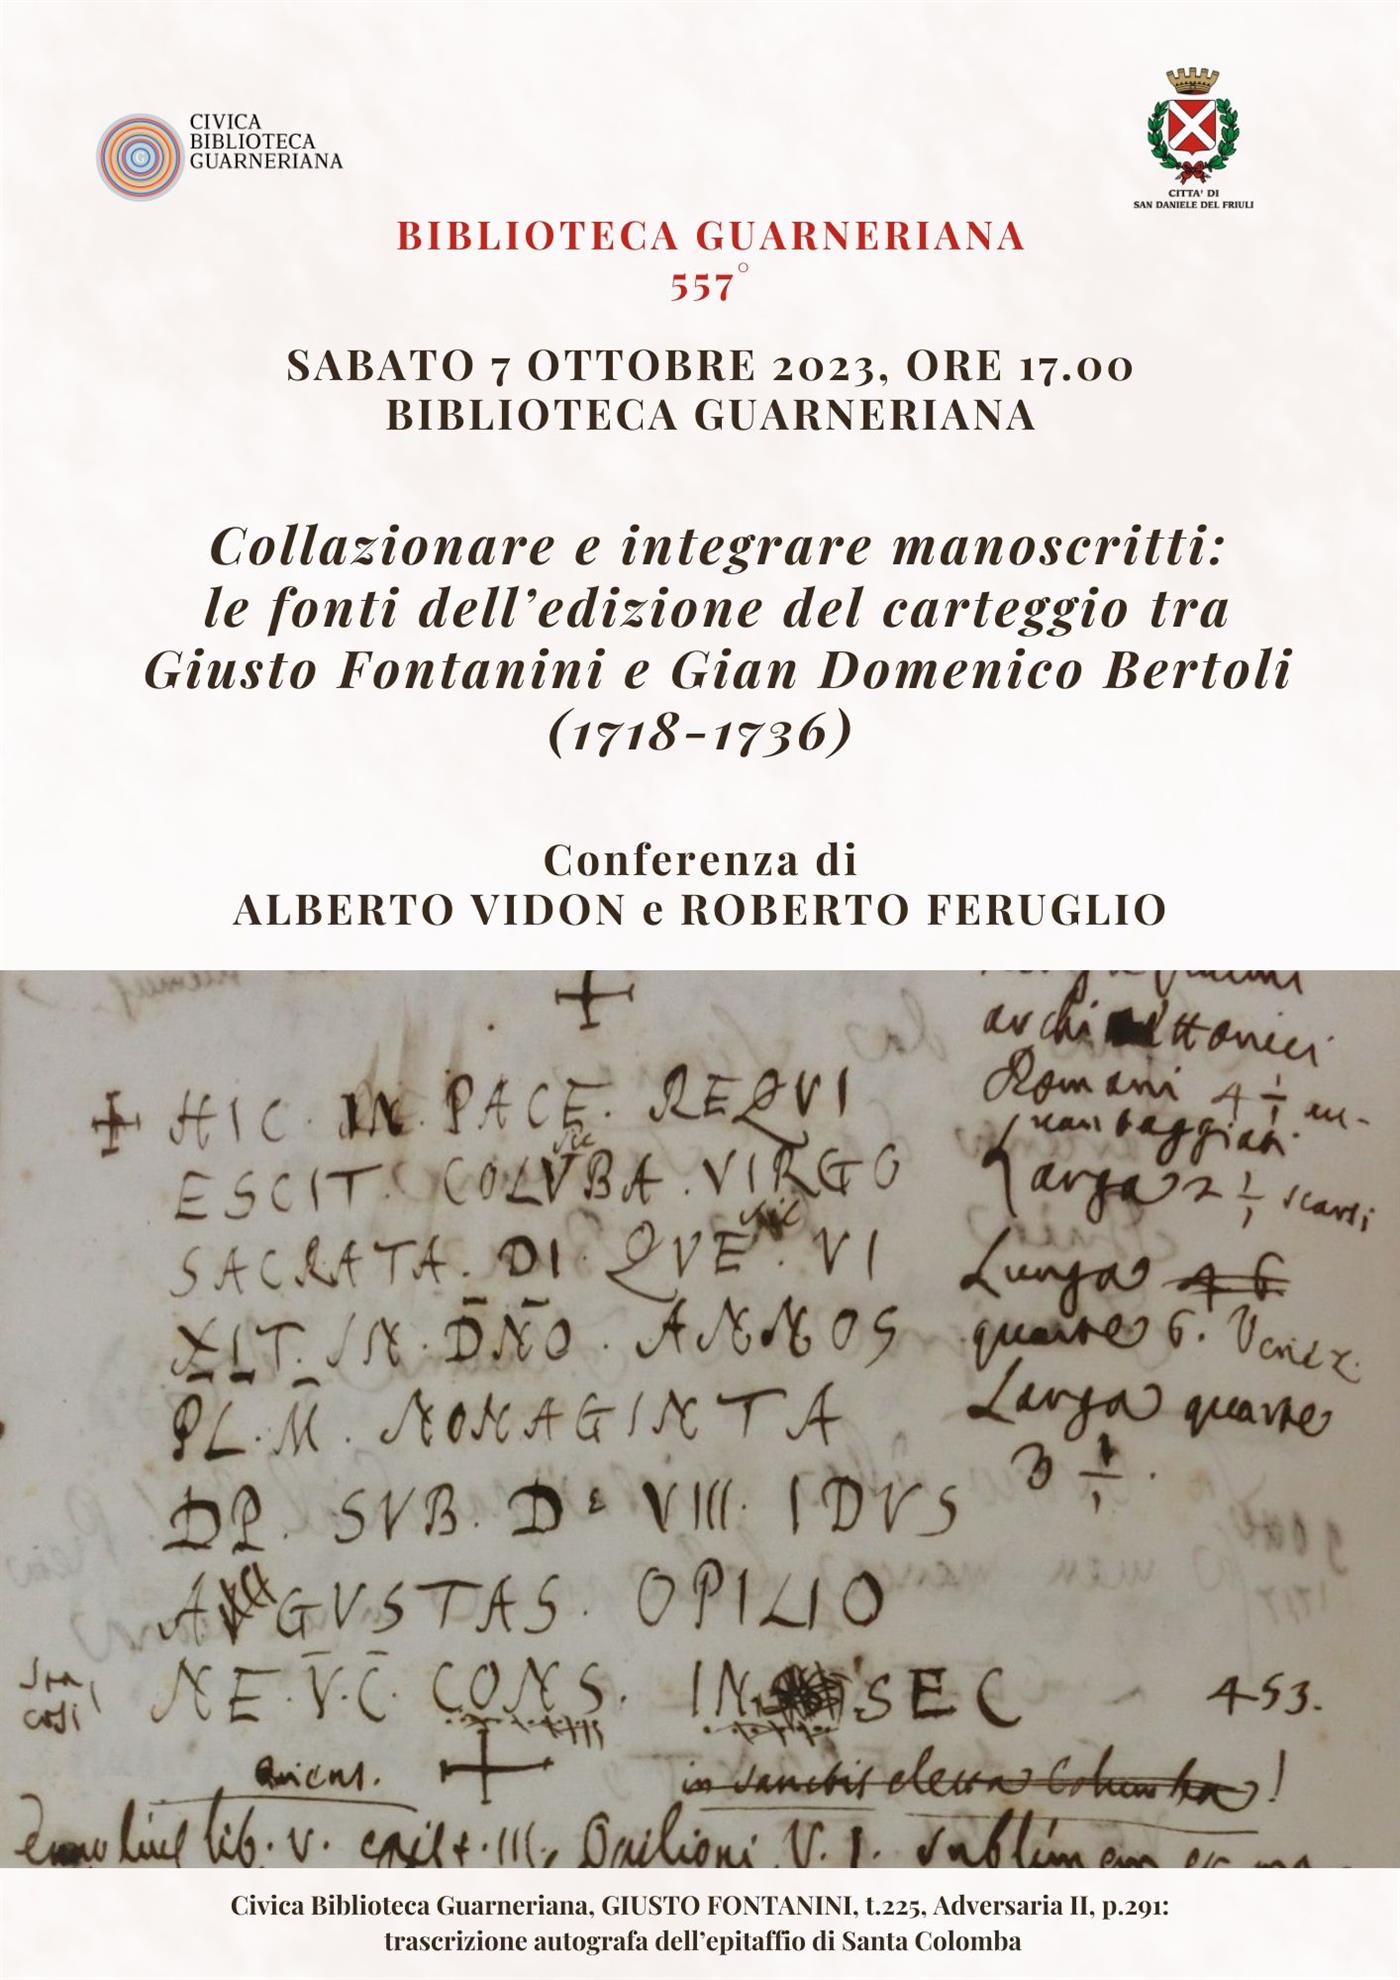 CIVICA
BIBLIOTECA
GUARNERIANA
CITTA' DI
SAN DANIELE DEL FRIULI
BIBLIOTECA GUARNERIANA
557°
SABATO 7 OTTOBRE 2023, ORE 17.00
BIBLIOTECA GUARNERIANA
Collazionare e integrare manoscritti:
le fonti dell’edizione del carteggio tra
Giusto Fontanini e Gian Domenico Bertoli
(1718-1736)
Conferenza di
ALBERTO VIDON e ROBERTO FERUGLIO
HIC · IN · PACE · REQVI
ESCIT · COLVBA · VIRGO
sic
SACRATA · DI · QVE · VI
sic
XIT · IN · DN̄O · ANNOS
PL · M · NONAGINTA
DP · SVB · D · VIII · IDVS
AGVSTAS · OPILIO
NE · V̄ · C̄ · CONS · IN SEC
453.
Romani 4
Larga 2 1/1 scarsi
Lunga 4 6
quarte 6. Venez.
Larga quarte
3 1/1.
in sanctis Columba!
lib. V. III. Opilioni V. I.
Civica Biblioteca Guarneriana, GIUSTO FONTANINI, t.225, Adversaria II, p.291:
trascrizione autografa dell’epitaffio di Santa Colomba